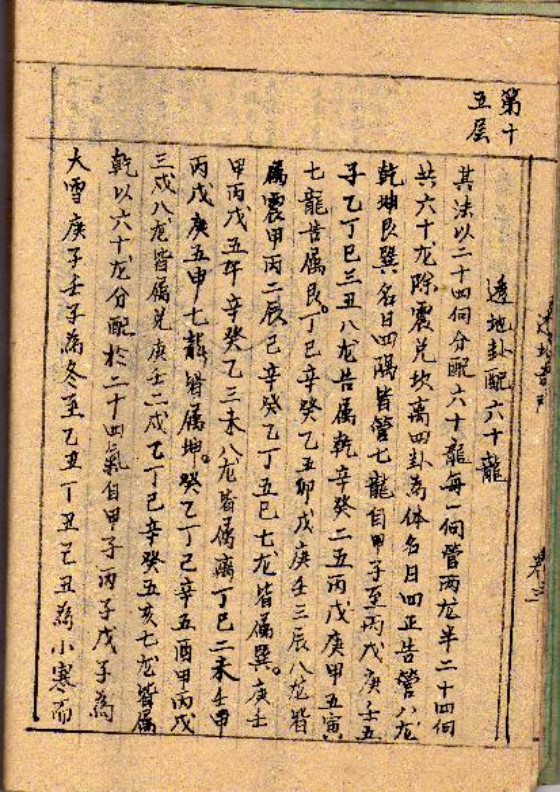 第十
五层
透地卦配六十龍
其法以二十四向分配六十龍每一向管两龙半二十四向
共六十龙除震兑坎离四卦為体名曰四正告管八龙
乾坤艮巽名曰四隅皆管七龍自甲子至丙戊庚壬五
子乙丁巳三丑八龙告属乾辛癸二五丙戊庚甲五寅
七龍告属艮。丁己辛癸乙五卯戊庚壬三辰八龙皆
属震甲丙二辰己辛癸乙丁五巳七龙皆属巽。庚壬
甲丙戊五午辛癸乙三未八龙皆属离丁巳二未壬甲
丙戊庚五申七龍皆属坤。癸乙丁己辛五酉甲丙戊
三戍八龙皆属兑庚壬二戍乙丁己辛癸五亥七龙皆属
乾以六十龙分配於二十四氣自甲子丙子戊子為
大雪庚子壬子為冬至乙丑丁丑己丑為小寒而
卷三